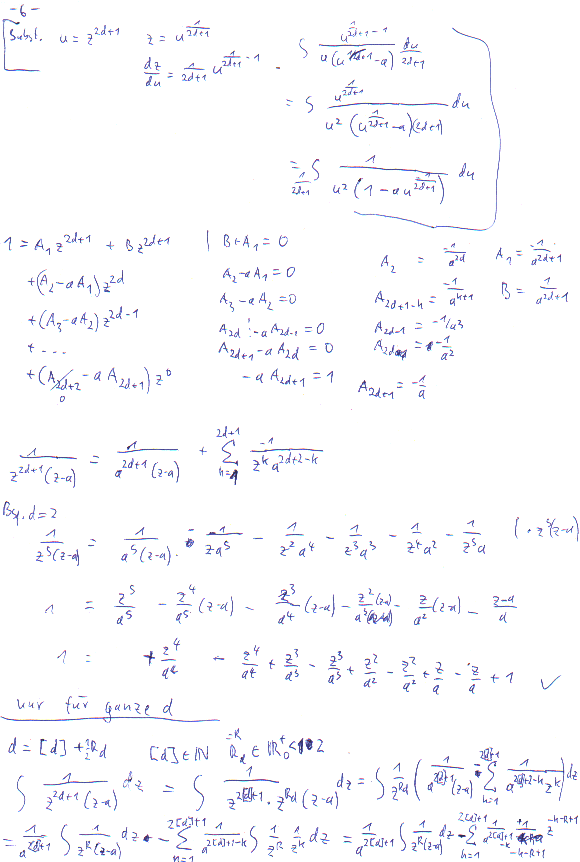 -6-
Subst. u = z^{2d+1} z = u^{\frac{1}{2d+1}}
\frac{dz}{du} = \frac{1}{2d+1} u^{\frac{1}{2d+1}-1}
∫ \frac{u^{\frac{1}{2d+1}-1}}{u(u^{\frac{1}{2d+1}}-a)} \frac{du}{2d+1}
= ∫ \frac{u^{\frac{1}{2d+1}}}{u^2 (u^{\frac{1}{2d+1}}-a)(2d+1)} du
= \frac{1}{2d+1} ∫ \frac{1}{u^2 (1-au^{\frac{1}{2d+1}})} du
1 = A_1 z^{2d+1} + B z^{2d+1} | B+A_1 = 0
+(A_2-aA_1) z^{2d} A_2-aA_1 = 0
+(A_3-aA_2) z^{2d-1} A_3-aA_2 = 0
+ ... A_{2d}-aA_{2d-1} = 0
A_{2d+1}-aA_{2d} = 0
+(A_{2d+2}-aA_{2d+1}) z^0 -aA_{2d+1} = 1
0
A_2 = \frac{-1}{a^{2d}} A_1 = \frac{-1}{a^{2d+1}}
A_{2d+1-k} = \frac{-1}{a^{k+1}} B = \frac{1}{a^{2d+1}}
A_{2d-1} = -1/a^3
= \frac{-1}{a^2}
A_{2d+1} = \frac{-1}{a}
\frac{1}{z^{2d+1}(z-a)} = \frac{1}{a^{2d+1}(z-a)} + \sum_{k=1}^{2d+1} \frac{-1}{z^k a^{2d+2-k}}
Bsp. d=2
\frac{1}{z^5(z-a)} = \frac{1}{a^5(z-a)} - \frac{1}{za^5} - \frac{1}{z^2a^4} - \frac{1}{z^3a^3} - \frac{1}{z^4a^2} - \frac{1}{z^5a} | · z^5(z-a)
1 = \frac{z^5}{a^5} - \frac{z^4}{a^5}(z-a) - \frac{z^3}{a^4}(z-a) - \frac{z^2(z-a)}{a^3} - \frac{z}{a^2}(z-a) - \frac{z-a}{a}
1 = + \frac{z^4}{a^4} - \frac{z^4}{a^4} + \frac{z^3}{a^3} - \frac{z^3}{a^3} + \frac{z^2}{a^2} - \frac{z^2}{a^2} + \frac{z}{a} - \frac{z}{a} + 1 ✓
nur für ganze d
[d] ∈ ℕ
∫ \frac{1}{z^{2d+1}(z-a)} dz = ∫ \frac{1}{z^{2[d]+1} · z^{R_d}(z-a)} dz = ∫ \frac{1}{z^{R_d}} ( \frac{1}{a^{2[d]+1}(z-a)} - \sum_{k=1}^{2[d]+1} \frac{1}{a^{2[d]+2-k} z^k} ) dz
= \frac{1}{a^{2[d]+1}} ∫ \frac{1}{z^R(z-a)} dz - \sum_{k=1}^{2[d]+1} \frac{1}{a^{2[d]+1-k}} ∫ \frac{1}{z^R} \frac{1}{z^k} dz = \frac{1}{a^{2[d]+1}} ∫ \frac{1}{z^R(z-a)} dz